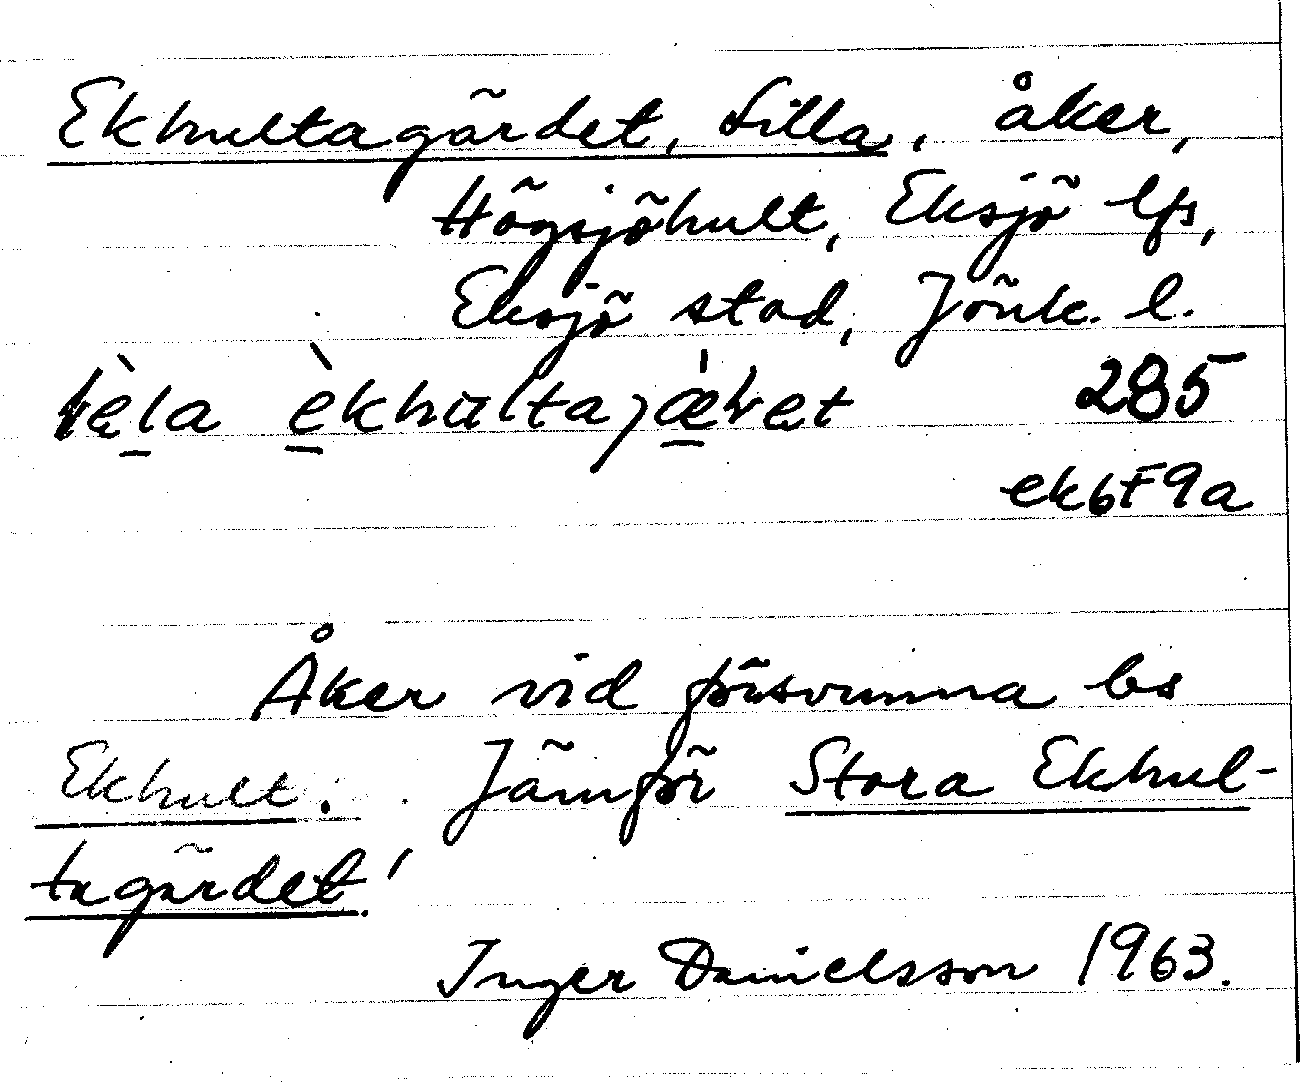 Ekhultagärdet, Lilla, åker,
Högsjöhult, Eksjö lfs,
Eksjö stad, Jönk. l.
ekhulta 285
ek6F9a
Åker vid försvunna bs
Ekhult. Jämför Stora Ekhul-
tagärdet!
Inger Danielsson 1963.